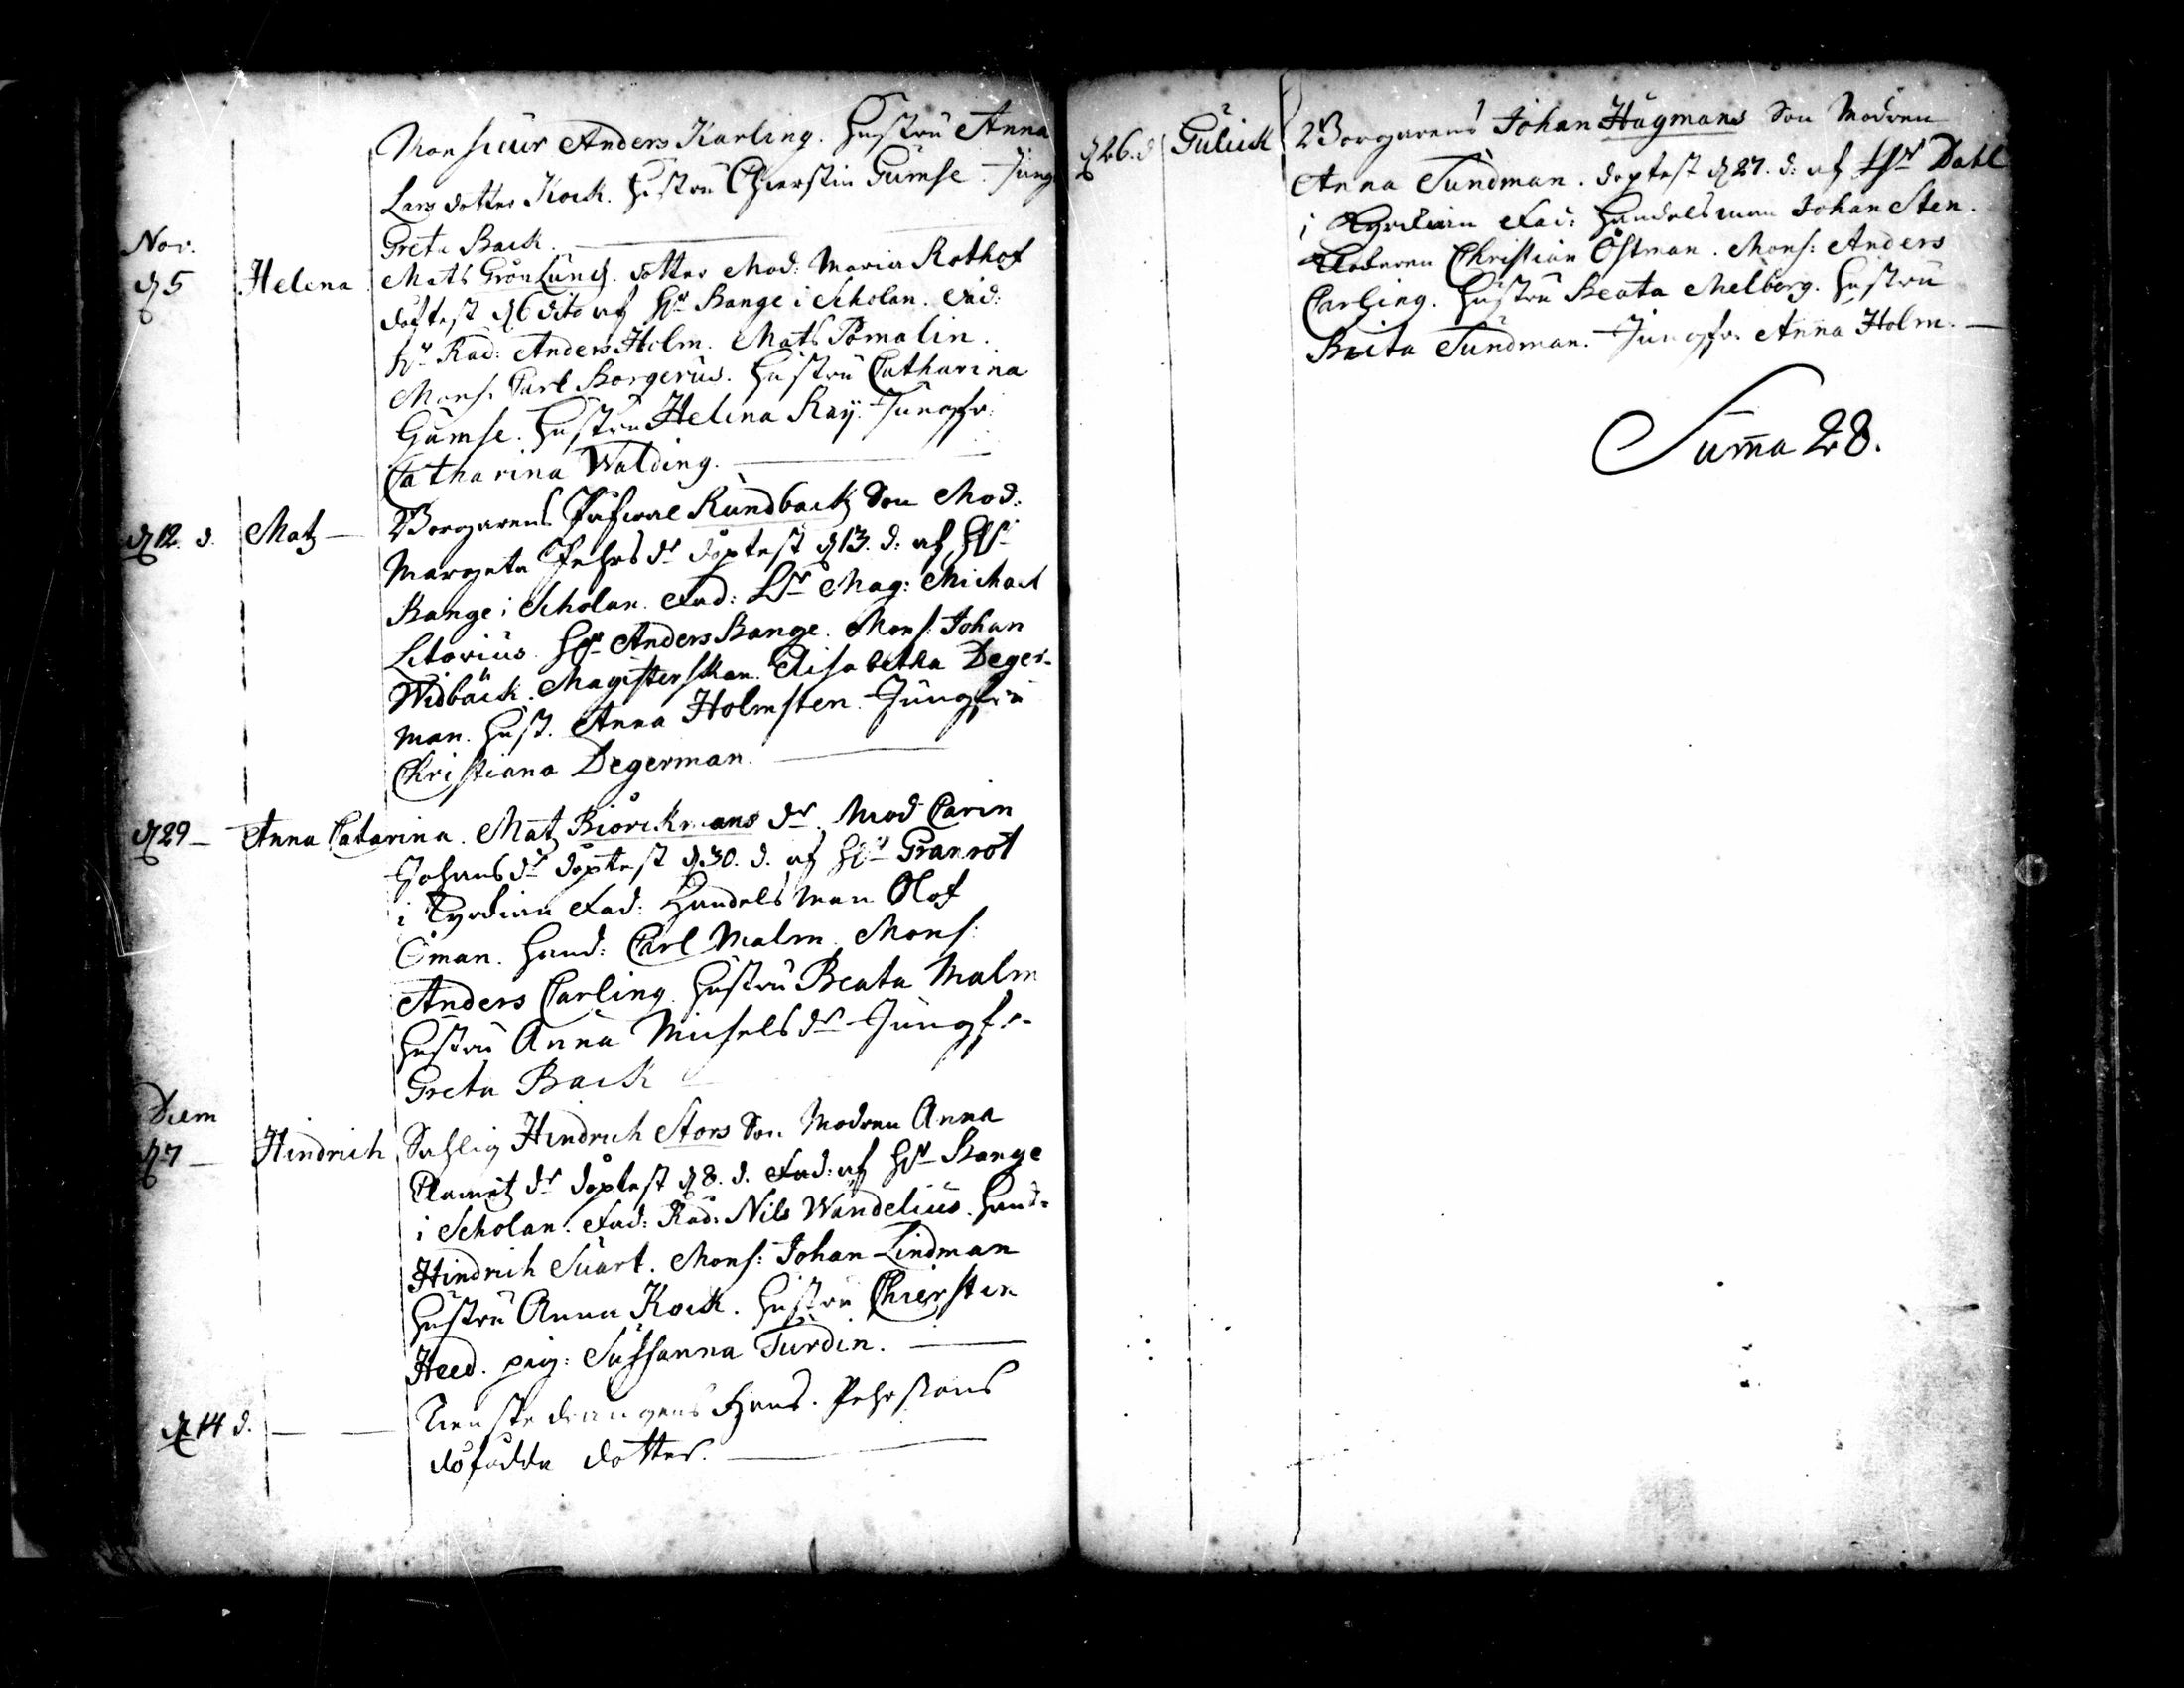 Monsieur Anders Karling. Hustru Anna
Larsdotter Kock. Hustru Chierstin Gumse. Jungf
Greta Back.
Nov.
d 5 Helena Mats Grönlunds dotter Mod: Maria Rothof
döptest d 6 dito af Hr Bange i Scholan. Fad:
Hr Råd: Anders Holm. Mats Pomalin.
Mons. Carl Borgerus. Hustru Catharina
Gumse. Hustru Helena Ray. Jungfr:
Catharina Walding.
d 12. d. Matz Borgarens Pafwal Rundback Son Mod:
Margeta Pehrs dr döptest d 13. d: af Hr
Bange i Scholan. Fad: Hr Mag: Michael
Litorius. Hr Anders Bange. Mons: Johan
Widbäck. Magisterskan Elisabetha Deger-
man. Hust. Anna Holmsten. Jungfru
Christiana Degerman.
d 29 Anna Catarina. Matz Biörckmans dr. Mod Carin
Johansdr döptest d 30. d. af Hr Granrot
i Kyrkian Fad: Handelsman Olof
Öman. Hand: Carl Malm. Mons:
Anders Carling. Hustru Beata Malm
Hustru Anna Michelsdr Jungfr
Greta Back
Decem
d 7 Hindrich Sahlig Hindrich Stors Son Modren Anna
Clametz dr döptest d 8. d. Fad: af Hr Bange
i Scholan. Fad: Råd: Nils Wandelius. Hand:
Hindrich Suart. Mons: Johan Lindman
Hustru Anna Kock. Hustru Chierstin
Heed. pig: Sussanna Turdin.
d 14 d. Tienste drängens Hans Pehrssons
döfödda dotter.
d 26. d Gulick Borgarens Johan Hagmans Son Modren
Anna Sundman. döptest d 27. d: af Hr Dahl
i Kyrkian Fad: Handelsman Johan Sten.
Christian Östman. Mons: Anders
Carling. Hustru Beata Melberg. Hustru
Brita Sundman. Jungfr: Anna Holm.
Suma 28.